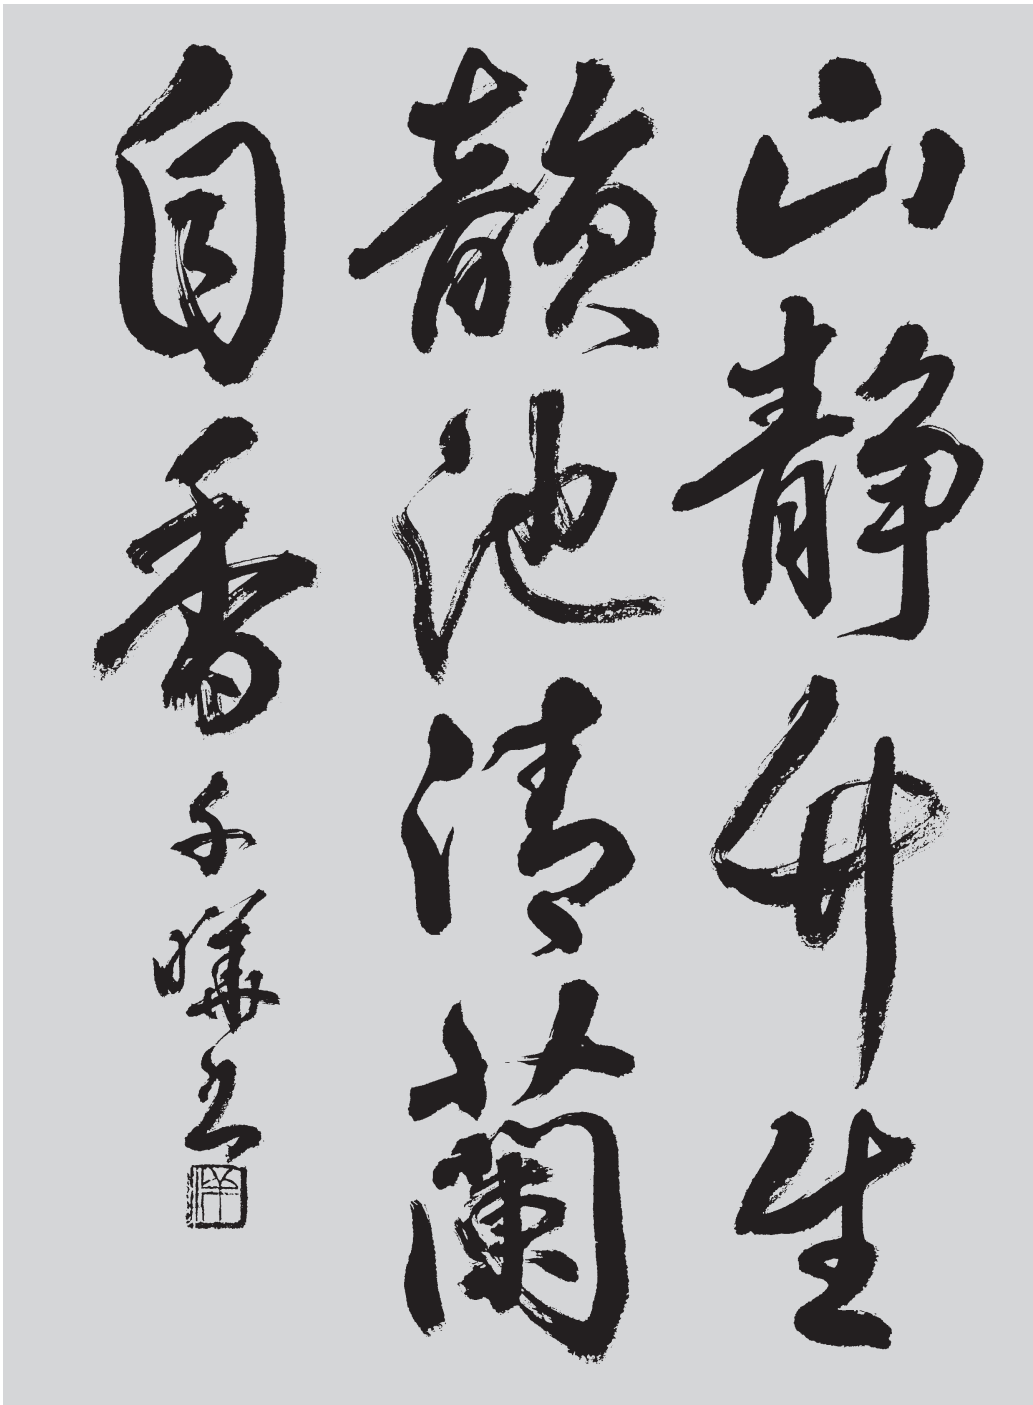 山静竹生
韻池清蘭
自香 千曄书